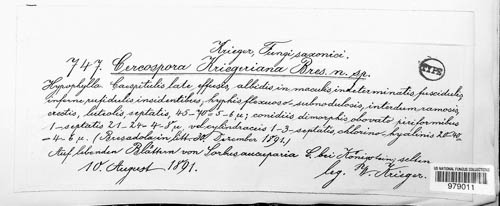 Krieger, Fungi saxonici.
747. Cercospora Kriegeriana Bres. n. sp.
TYPE
Hypophylla. Caespitulis late effusis, albidis, in maculis indeterminatis fuscidulis,
inferne rufidulis insidentibus, hyphis flexuoso-subnodulosis, interdum ramosis,
erectis, luteolis, septatis, 45-70=5-6 µ; conidiis dimorphis obovato piriformibus
1-septatis 21-24=4-5 µ vel cylindraceis 1-3-septatis, chlorino-hyalinis 20-40
=4-6 µ. (Bresadola in litt. 30. Dezember 1891.)
Auf lebenden Blättern von Sorbus aucuparia L. bei Königstein, selten
10. August 1891. leg. W. Krieger.
US NATIONAL FUNGUS COLLECTIONS
979011